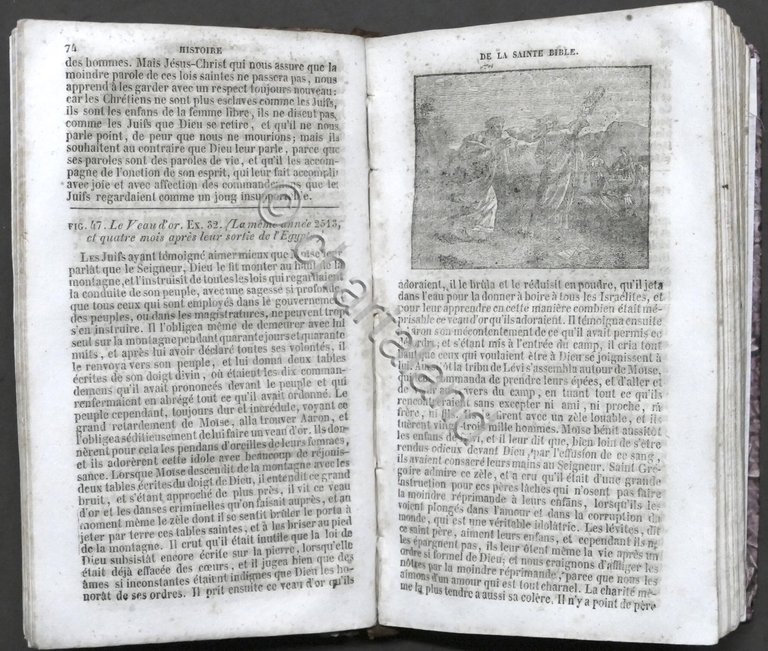 74
HISTOIRE
des hommes. Mais Jésus-Christ qui nous assure que la
moindre parole de ces lois saintes ne passera pas, nous
apprend à les garder avec un respect toujours nouveau:
car les Chrétiens ne sont plus esclaves comme les Juifs,
ils sont les enfans de la femme libre, ils ne disent pas,
comme les Juifs que Dieu se retire, et qu'il ne nous
parle point, de peur que nous ne mourions; mais ils
souhaitent au contraire que Dieu leur parle, parce que
ses paroles sont des paroles de vie, et qu'il les accom-
pagne de l'onction de son esprit, qui leur fait accomplir
avec joie et avec affection des commandemens que les
Juifs regardaient comme un joug insupportable.
FIG. 47. Le Veau d'or. Ex. 32. (La même année 2513,
et quatre mois après leur sortie de l'Egypte
LES Juifs ayant témoigné aimer mieux que Moïse leur
parlât que le Seigneur, Dieu le fit monter au haut de la
montagne, et l'instruisit de toutes les lois qui regardaient
la conduite de son peuple, avec une sagesse si profonde
que tous ceux qui sont employés dans le gouvernement
des peuples, ou dans les magistratures, ne peuvent trop
s'en instruire. Il l'obligea même de demeurer avec lui
seul sur la montagne pendant quarante jours et quarante
nuits, et après lui avoir déclaré toutes ses volontés, il
le renvoya vers son peuple, et lui donna deux tables
écrites de son doigt divin, où étaient les dix comman-
demens qu'il avait prononcés devant le peuple et qui
renfermaient en abrégé tout ce qu'il avait ordonné. Le
peuple cependant, toujours dur et incrédule, voyant ce
grand retardement de Moïse, alla trouver Aaron, et
l'obligea séditieusement de lui faire un veau d'or. Ils don-
nèrent pour cela les pendans d'oreilles de leurs femmes,
et ils adorèrent cette idole avec beaucoup de réjouis-
sance. Lorsque Moïse descendit de la montagne avec les
deux tables écrites du doigt de Dieu, il entendit ce grand
bruit, et s'étant approché de plus près, il vit ce veau
d'or et les danses criminelles qu'on faisait auprès, et au
moment même le zèle dont il se sentit brûler le porta à
jeter par terre ces tables saintes, et à les briser au pied
de la montagne. Il crut qu'il était inutile que la loi de
Dieu subsistât encore écrite sur la pierre, lorsqu'elle
était déjà effacée des cœurs, et il jugea bien que des
âmes si inconstantes étaient indignes que Dieu les ho-
norât de ses ordres. Il prit ensuite ce veau d'or qu'ils
DE LA SAINTE BIBLE.
adoraient, il le brûla et le réduisit en poudre, qu'il jeta
dans l'eau pour la donner à boire à tous les Israélites, et
pour leur apprendre en cette manière combien était mé-
prisable ce veau d'or qu'ils adoraient. Il témoigna ensuite
à Aaron son mécontentement de ce qu'il avait permis ce
désordre; et s'étant mis à l'entrée du camp, il cria tout
haut que ceux qui voulaient être à Dieu se joignissent à
lui. Aussitôt la tribu de Lévi s'assembla autour de Moïse,
qui leur commanda de prendre leurs épées, et d'aller et
de venir au travers du camp, en tuant tout ce qu'ils
rencontreraient sans excepter ni ami, ni proche, ni
frère, ni fils. Ils obéirent avec un zèle louable, et ils
tuèrent vingt-trois mille hommes. Moïse bénit aussitôt
les enfans de Lévi, et il leur dit que, bien loin de s'être
rendus odieux devant Dieu, par l'effusion de ce sang,
ils avaient consacré leurs mains au Seigneur. Saint Gré-
goire admire ce zèle, et a cru qu'il était d'une grande
instruction pour ces pères lâches qui n'osent pas faire
la moindre réprimande à leurs enfans, lorsqu'ils les
voient plongés dans l'amour et dans la corruption du
monde, qui est une véritable idolâtrie. Les lévites, dit
ce saint père, aiment leurs enfans, et cependant ils ne
les épargnent pas, ils leur ôtent même la vie après un
ordre si formel de Dieu; et nous craignons d'affliger les
nôtres par la moindre réprimande, parce que nous les
aimons d'un amour qui est tout charnel. La charité mê-
me la plus tendre a aussi sa colère. Il n'y a point de père
© chartaene